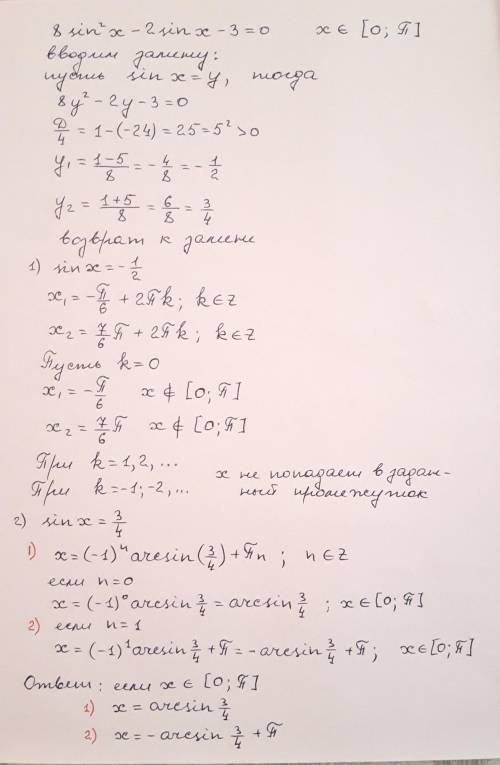 8 sin² x − 2 sin x − 3 = 0 x ∈ [0; П]
вводим замену:
пусть sin x = y, тогда
8y² − 2y − 3 = 0
Д/4 = 1 − (−24) = 25 = 5² > 0
y₁ = (1−5)/8 = − 4/8 = − 1/2
y₂ = (1+5)/8 = 6/8 = 3/4
возврат к замене
1) sin x = − 1/2
x₁ = − П/6 + 2Пk; k ∈ Z
x₂ = 7/6 П + 2Пk; k ∈ Z
Пусть k = 0
x₁ = − П/6 x ∉ [0; П]
x₂ = 7/6 П x ∉ [0; П]
При k = 1, 2, ... x не попадает в задан-
При k = −1; −2, ... ный промежуток
2) sin x = 3/4
1) x = (−1)ⁿ arcsin (3/4) + Пn ; n ∈ Z
если n = 0
x = (−1)⁰ arcsin 3/4 = arcsin 3/4 ; x ∈ [0; П]
2) если n = 1
x = (−1)¹ arcsin 3/4 + П = − arcsin 3/4 + П; x ∈ [0; П]
Ответ: если x ∈ [0; П]
1) x = arcsin 3/4
2) x = − arcsin 3/4 + П